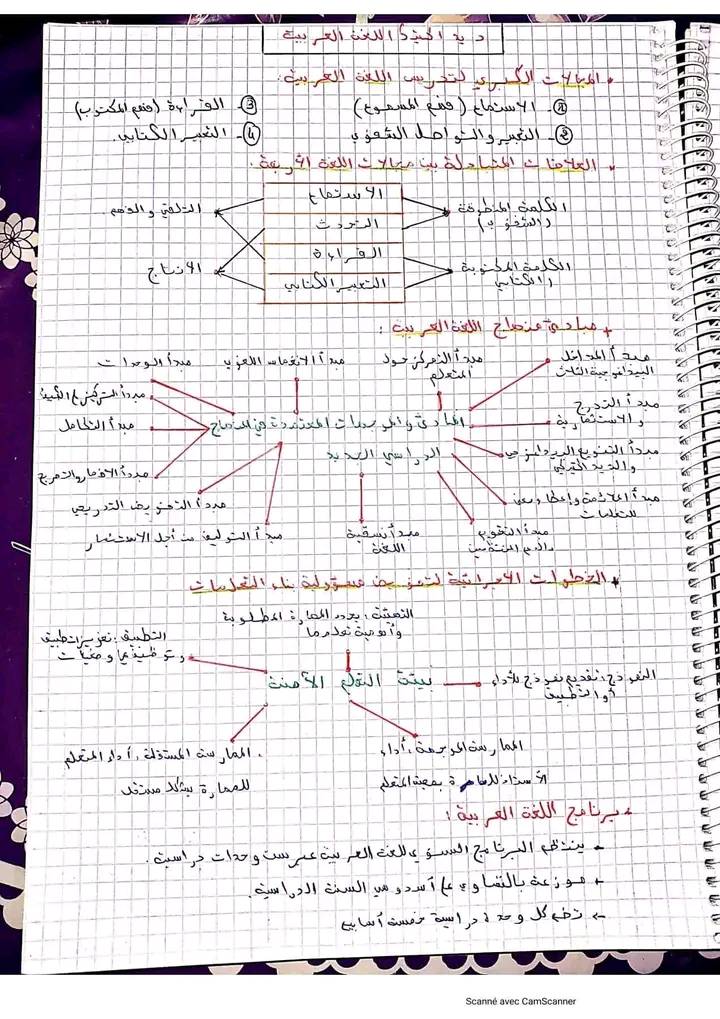 ديداكتيك اللغة العربية
• المجالات الكبرى لتدريس اللغة العربية:
① الاستماع (فهم المسموع) ③ القراءة (فهم المكتوب)
② التعبير والتواصل الشفوي ④ التعبير الكتابي.
• العلاقات المتبادلة بين مجالات اللغة الأربعة.
الاستماع
التحدث
القراءة
التعبير الكتابي
الكلمة المنطوقة
(الشفوية)
الكلمة المكتوبة
(الكتابي)
التلقي والفهم
الانتاج
+ مبادئ منهاج اللغة العربية:
مبدأ المداخل
البيداغوجية الثلاث
مبدأ التمركز حول
المتعلم
مبدأ الانغماس اللغوي
مبدأ الوحدات
مبدأ التدرج
والاستمرارية
مبدأ التركيز على الكيف
المبادئ والموجهات المعتمدة في المنهاج
الدراسي الجديد
مبدأ التكامل
مبدأ التنويع البيداغوجي
والديداكتيكي
مبدأ الملاءمة وإعطاء معنى
للتعلمات
مبدأ التقويم
والدعم المنتظمين
مبدأ نسقية
اللغة
مبدأ التفويض التدريجي
مبدأ التوليف من أجل الاستثمار
+ الخطوات الاجرائية لتفويض مسؤولية بناء التعلمات
التهيئة: يحدد المهارة المطلوبة
وأهمية تعلمها
النمذجة: تقديم نموذج للأداء
أو التطبيق
بيئة التعلم الآمنة
التطبيق: تعزيز التطبيق
وتوظيفها وضعيات
الممارسة الموجهة: أداء
الأستاذ للمهارة بمعية المتعلم
الممارسة المستقلة: أداء المتعلم
للمهارة بشكل مستقل
• برنامج اللغة العربية:
- ينتظم البرنامج السنوي للغة العربية عبر ست وحدات دراسية.
+ موزعة بالتساوي على أسدوسي السنة الدراسية.
← تضم كل وحدة دراسية خمسة أسابيع
Scanné avec CamScanner